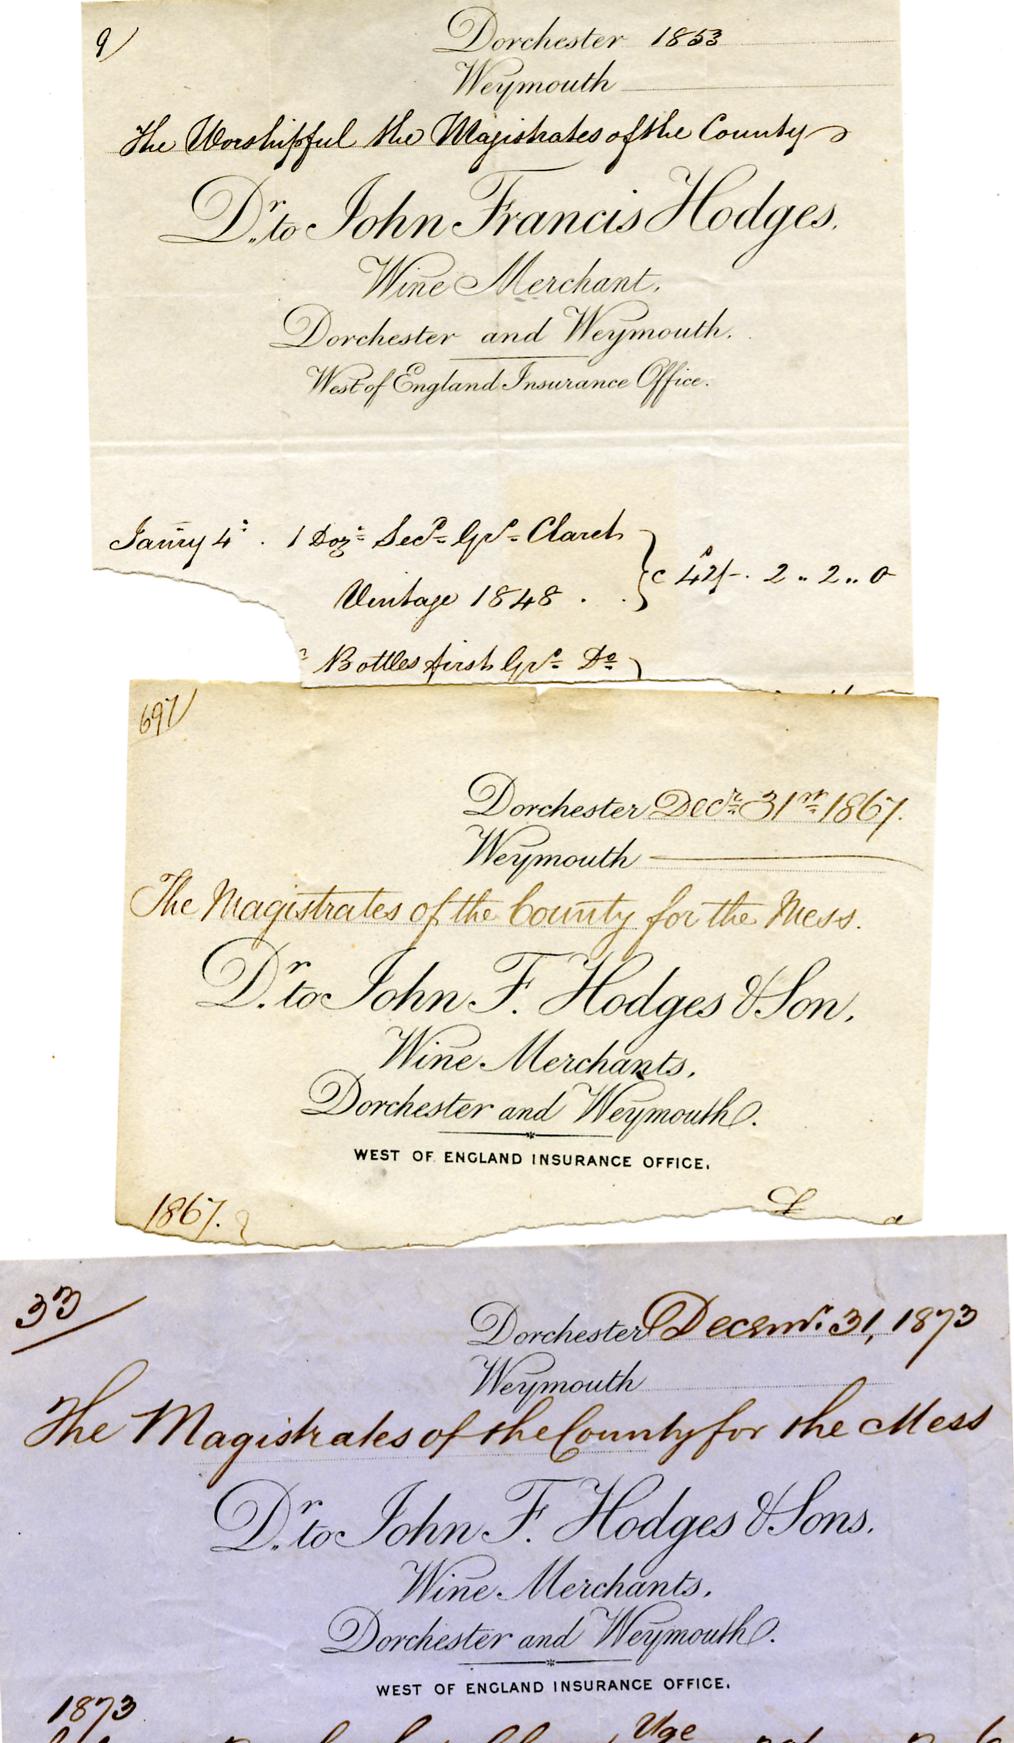 9/
Dorchester 1853
Weymouth
The Worshipful the Magistrates of the County
Dr. to John Francis Hodges.
Wine Merchant.
Dorchester and Weymouth.
West of England Insurance Office.
Janry 4 . 1 Doz: Secd Gr Claret
Vintage 1848 . . } c 42/-. 2 .. 2 .. 0
Bottles first Gr Do
697/
Dorchester Decr 31st 1867.
Weymouth
The Magistrates of the County for the Mess.
Dr. to John F. Hodges & Son,
Wine Merchants,
Dorchester and Weymouth.
WEST OF ENGLAND INSURANCE OFFICE.
1867. £
33/
Dorchester Decemr. 31, 1873
Weymouth
The Magistrates of the County for the Mess
Dr. to John F. Hodges & Sons.
Wine Merchants,
Dorchester and Weymouth.
WEST OF ENGLAND INSURANCE OFFICE.
1873